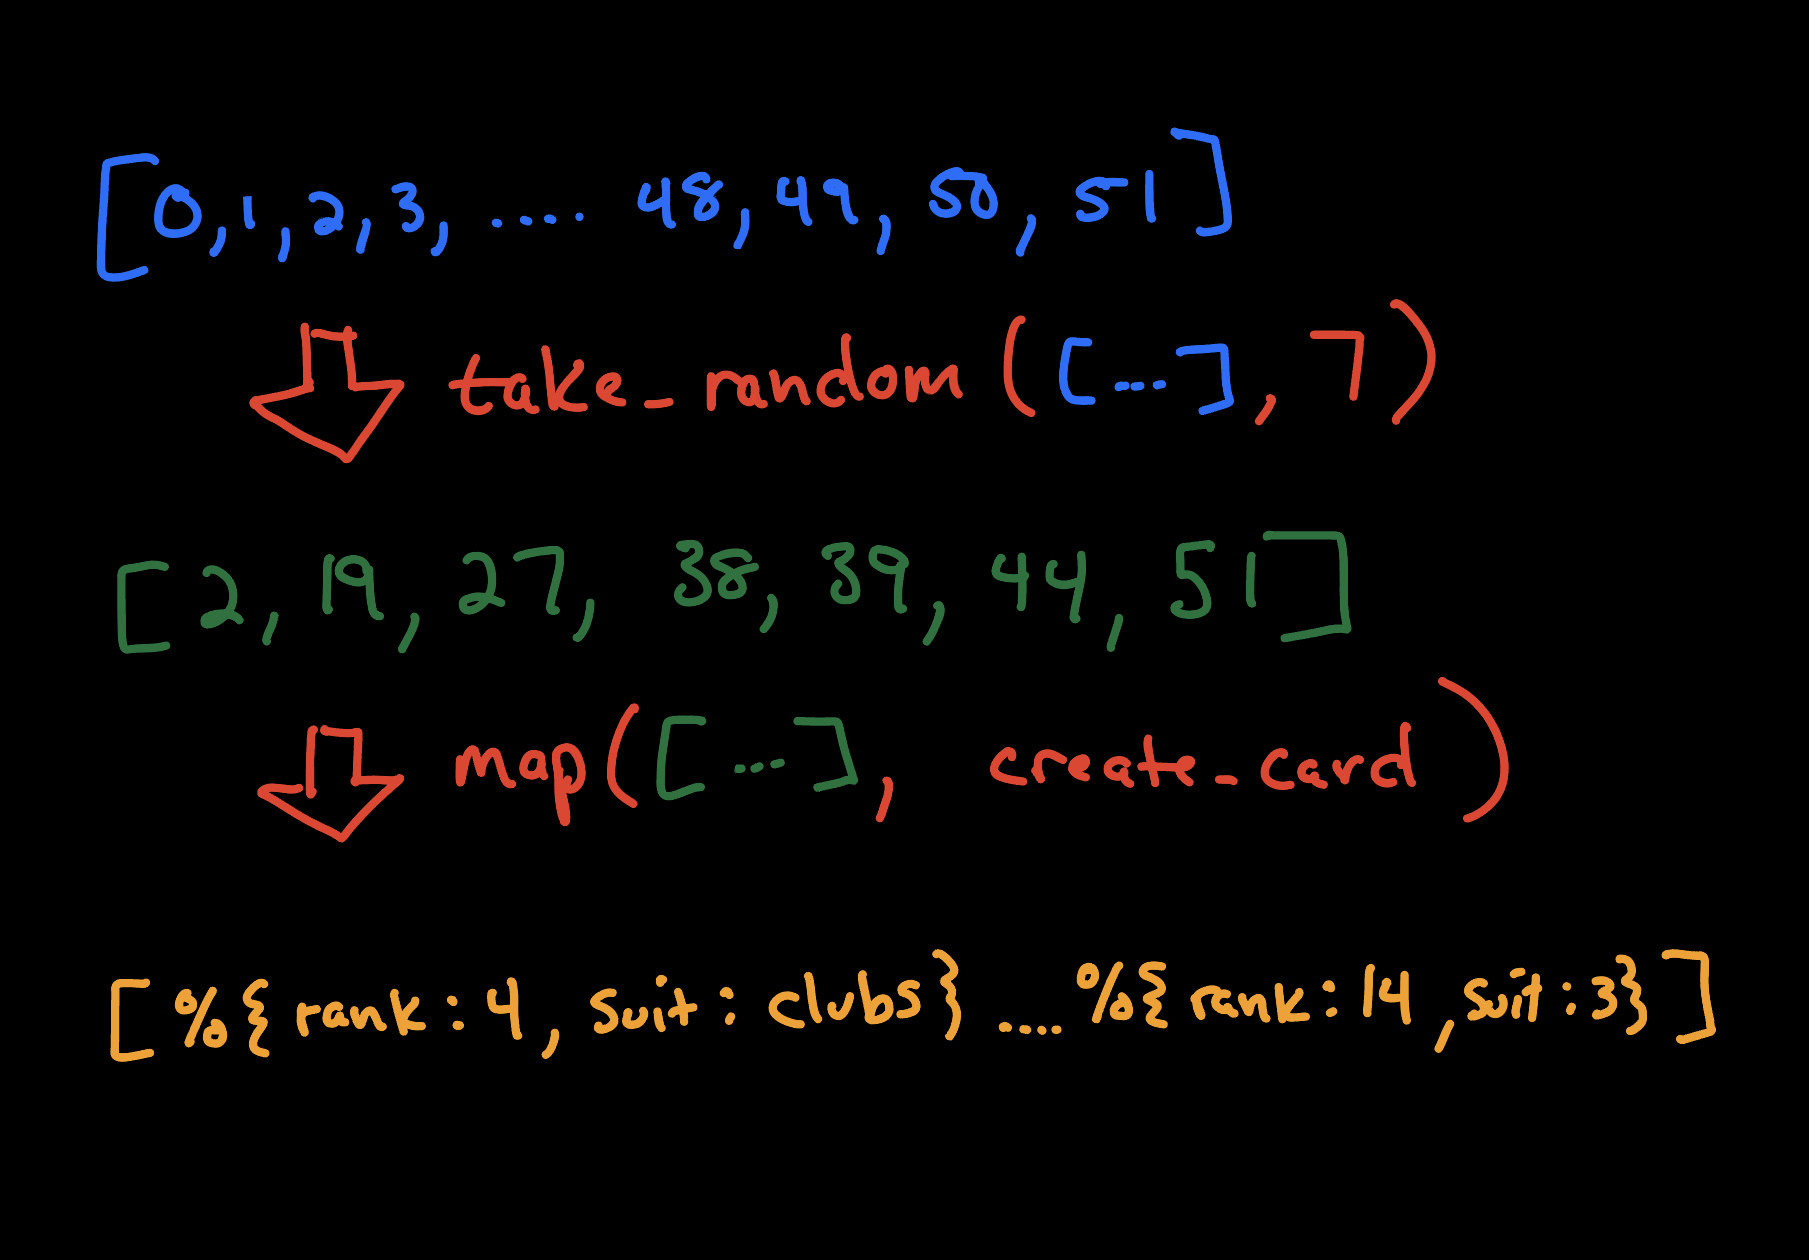 [0,1,2,3, .... 48,49,50,51]
take_random([...],7)
[2,19,27,38,39,44,51]
map([...], create_card)
[%{rank:4, suit:clubs} .... %{rank:14,suit:3}]